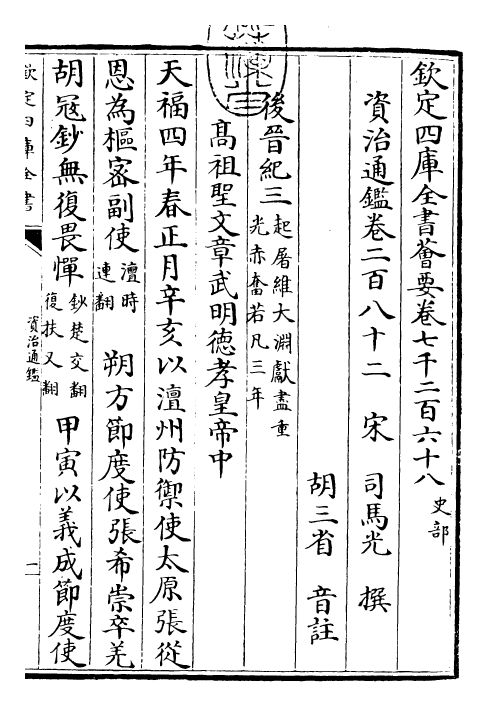 欽定四庫全書薈要卷七千二百六十八 史部
資治通鑑卷二百八十二 宋 司馬光 撰
胡三省 音註
後晉紀三 起屠維大淵獻盡重光赤奮若凡三年
高祖聖文章武明德孝皇帝中
天福四年春正月辛亥以澶州防禦使太原張從
恩為樞密副使 澶時連翻 朔方節度使張希崇卒羌
胡冦鈔無復畏憚 鈔楚交翻復扶又翻 甲寅以義成節度使
欽定四庫全書
資治通鑑
一